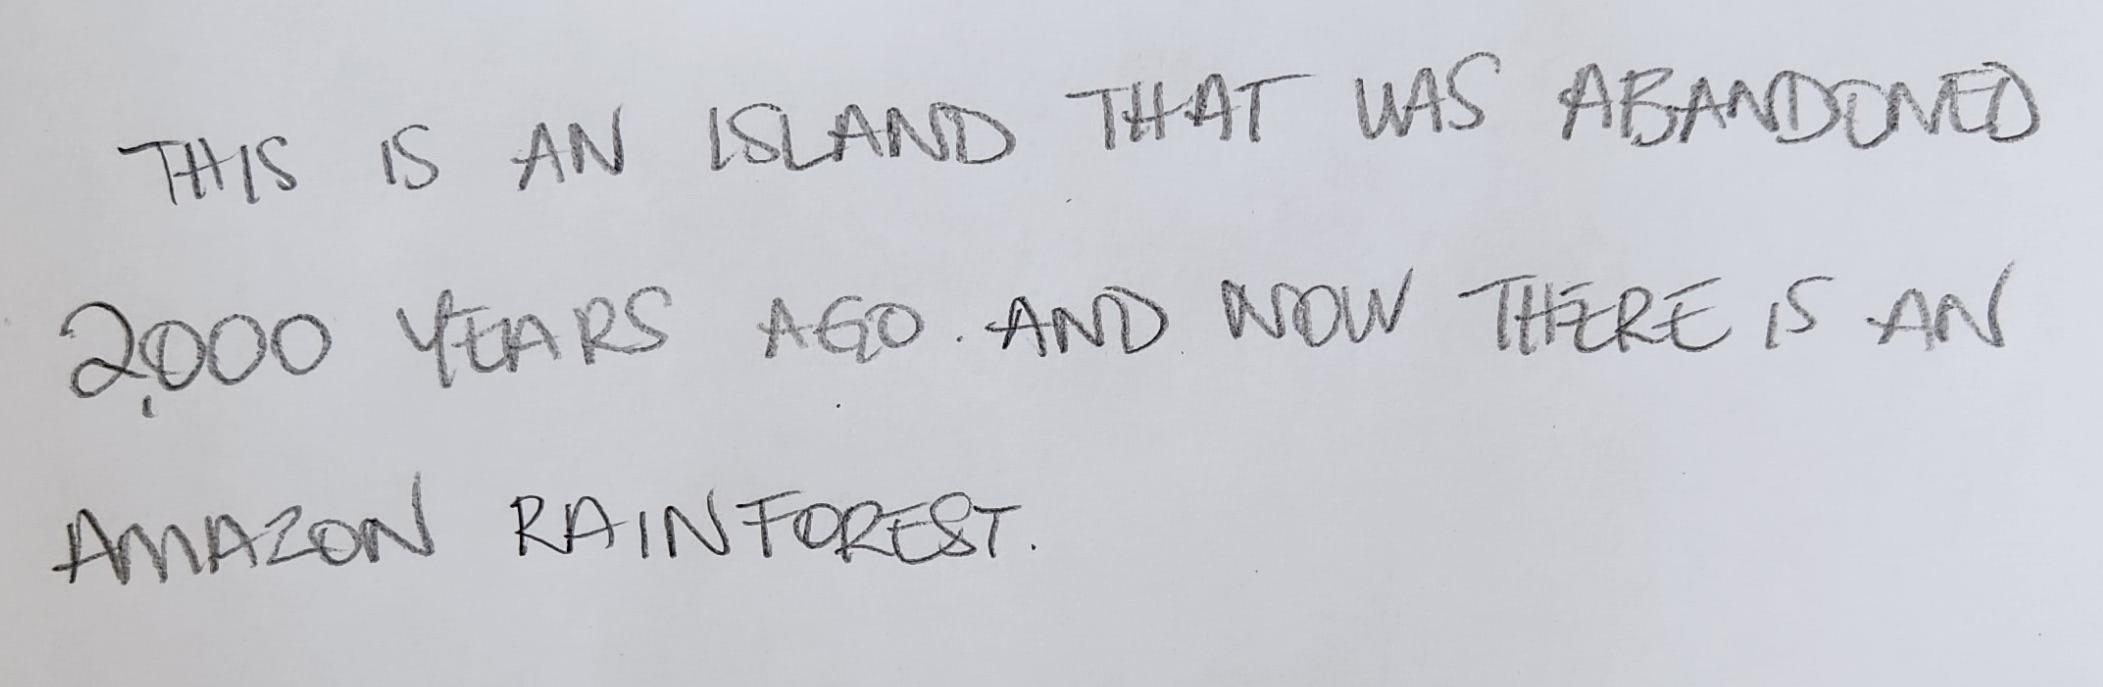 THIS IS AN ISLAND THAT WAS ABANDONED
2,000 YEARS AGO. AND NOW THERE IS AN
AMAZON RAINFOREST.